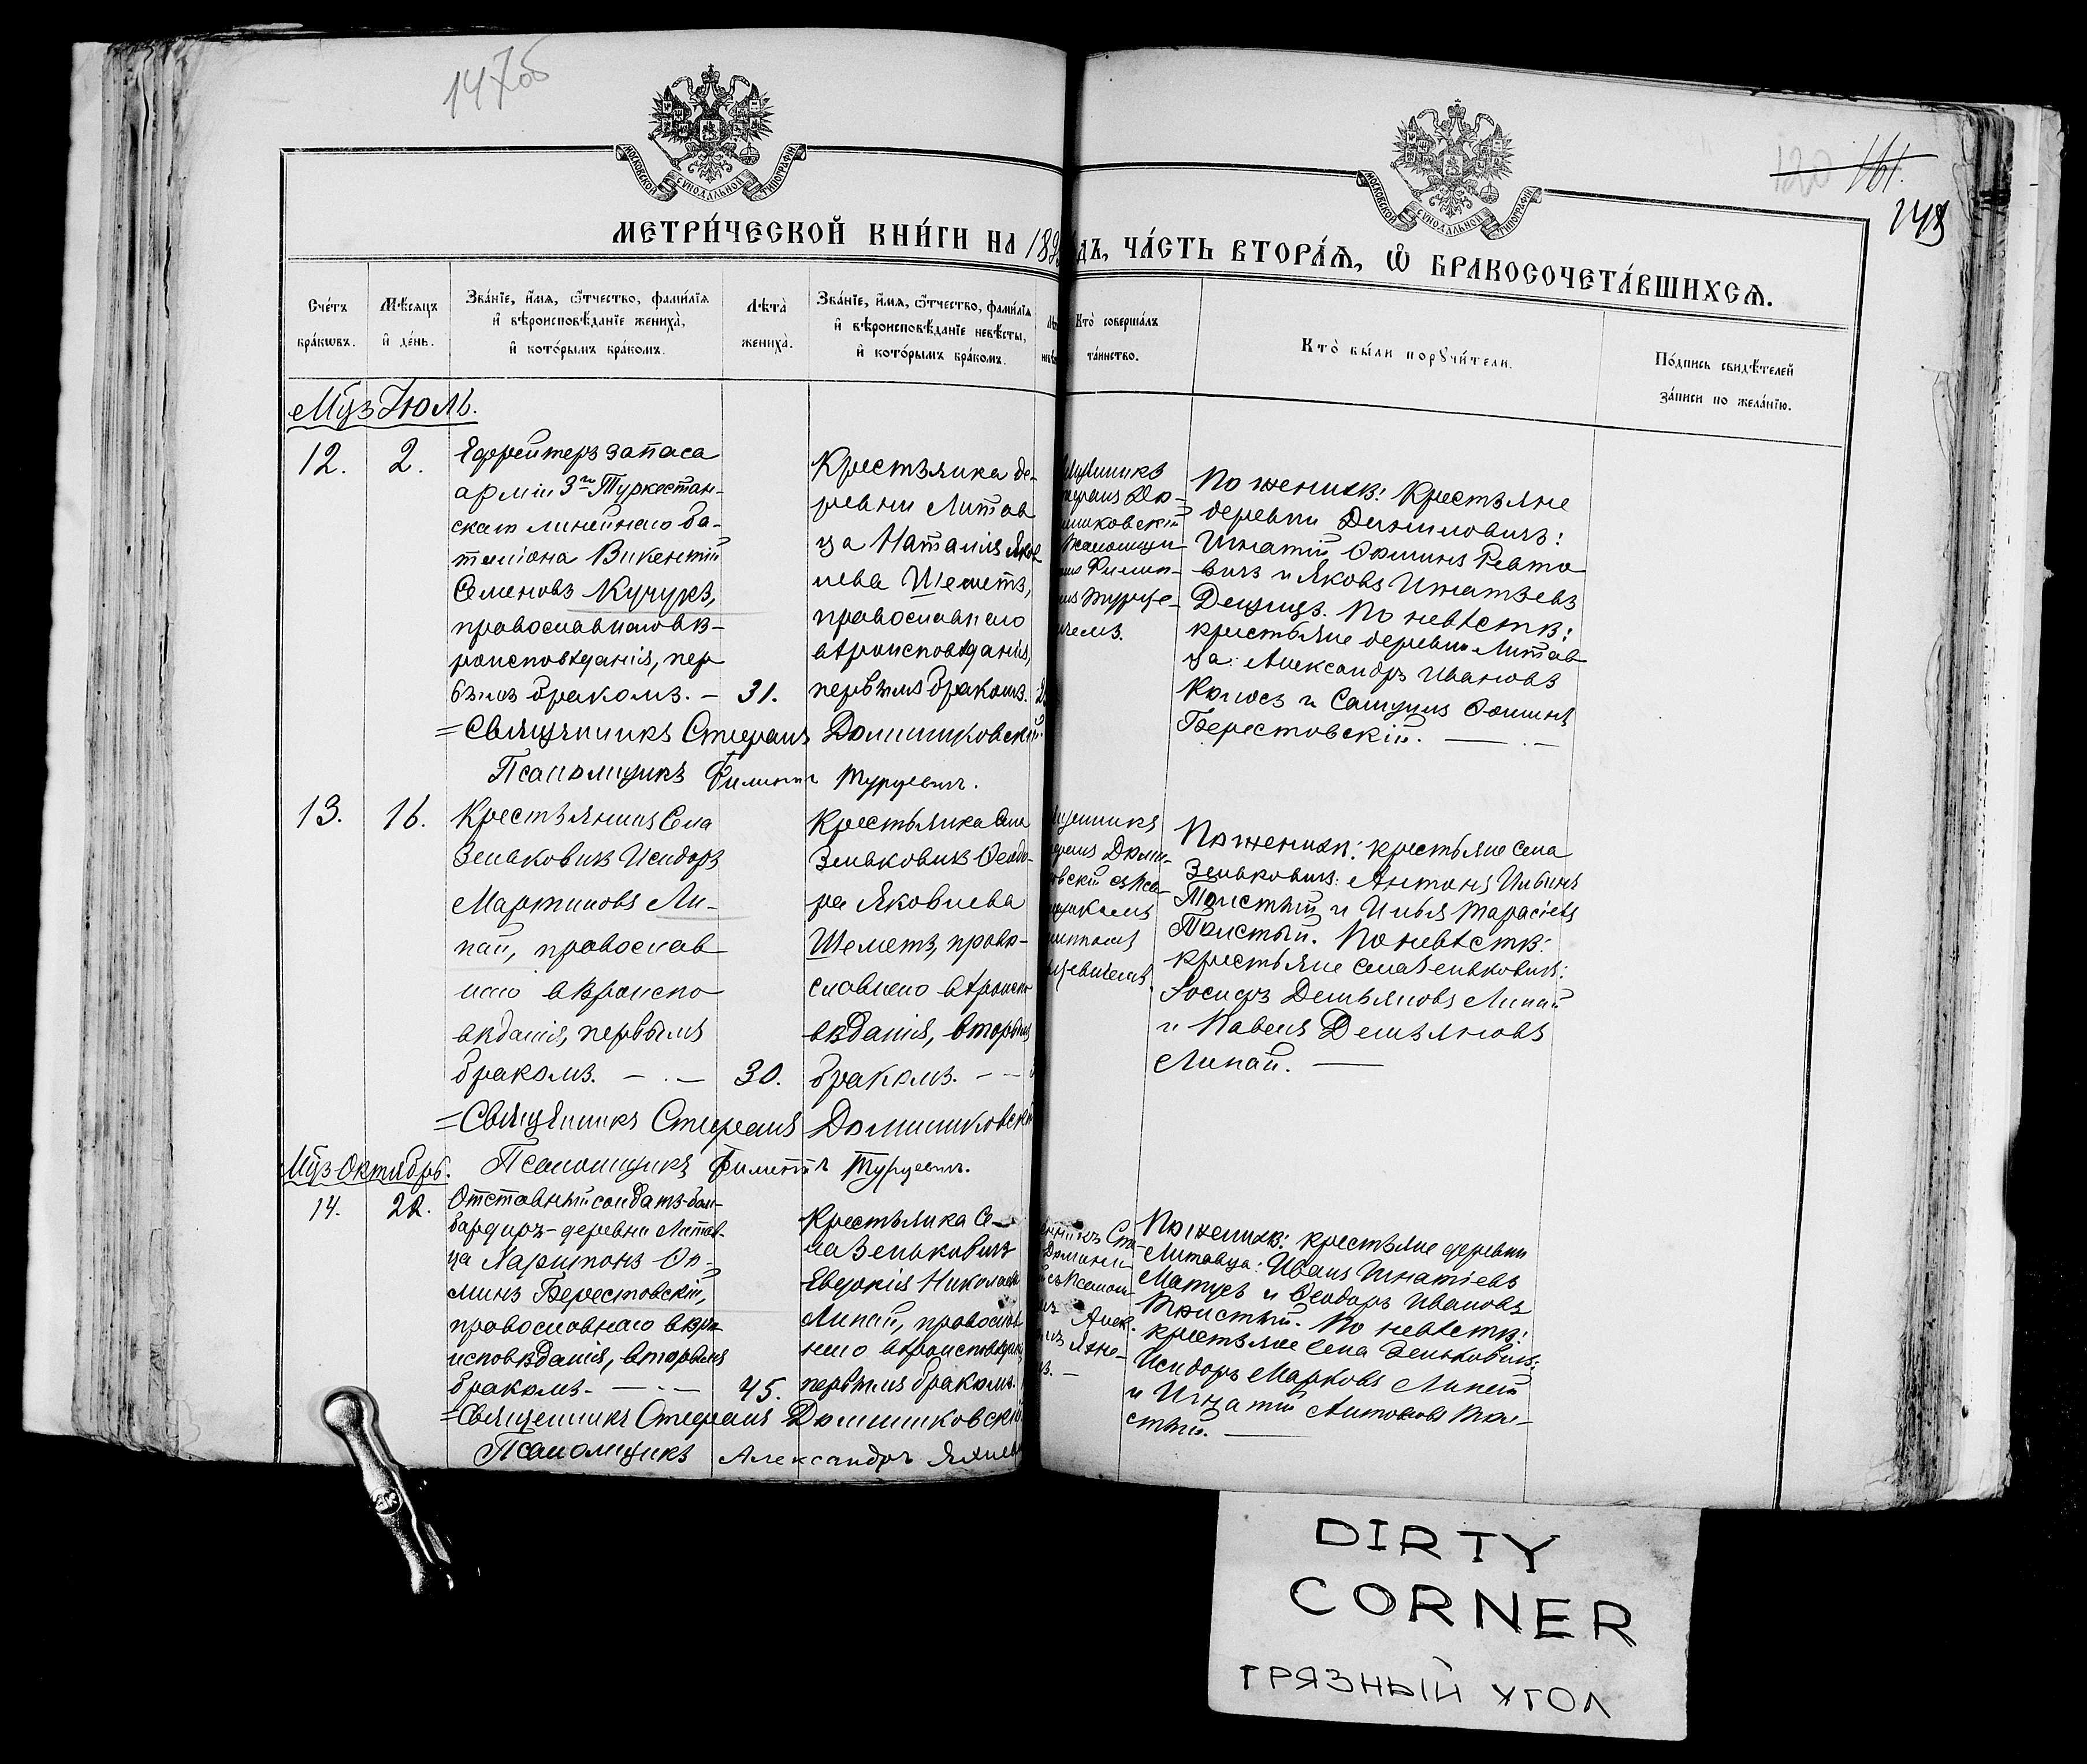 147об
МОСКОВСКОЙ СѴНОДАЛЬНОЙ ТИПОГРАФІИ
МОСКОВСКОЙ СѴНОДАЛЬНОЙ ТИПОГРАФІИ
161.
148
МЕТРИ́ЧЕСКОЙ КНИ́ГИ НА 189
ДЪ, ЧА́СТЬ ВТОРА́Ѧ, Ѽ БРАКОСОЧЕТА́ВШИХСѦ.
Сче́тъ
бра́кѡвъ.
Мѣ́сяцъ
и҆ де́нь.
Зва́нїе, и҆́мѧ, ѻ҆́тчество, фами́лїѧ
и҆ вѣроисповѣ́данїе жениха̀,
и҆ кото́рымъ бра́комъ.
Лѣта̀
жениха̀.
Зва́нїе, и҆́мѧ, ѻ҆́тчество, фами́лїѧ
и҆ вѣроисповѣ́данїе невѣ́сты,
и҆ кото́рымъ бра́комъ.
Кто̀ соверша́лъ
та́инство.
Кто̀ бы́ли порꙋчи́тели.
По́дпись свидѣ́телей
за́писи по жела́нїю.
Мцъ Іюль.
12.
2.
Ефрейторъ запаса
арміи 3го Туркестан-
скаго линейнаго ба-
таліона Викентій
Семеновъ Кучукъ,
православнаго вѣ-
роисповѣданія, пер
вымъ бракомъ. —
31.
Крестьянка де-
ревни Литов
ца Наталія Яков
лева Шеметъ,
православнаго
вѣроисповѣданія,
первымъ бракомъ.
По женихѣ: Крестьяне
деревни
Игнатій Ѳоминъ
вичъ и Яковъ Игнатьевъ
По невѣстѣ:
крестьяне деревни Литов
ца: Александръ Ивановъ
и Самуилъ Ѳоминъ
Берестовскій. —
=Священникъ Стефанъ Доминиковскій
Псаломщикъ Филиппъ Турцевичъ.
13.
16.
Крестьянинъ Села
Зеньковичъ Исидоръ
Мартиновъ Ли-
пай, православ
наго вѣроиспо
вѣданія, первымъ
бракомъ. —
30.
Крестьянка Села
Зеньковичъ Ѳеодо-
ра Яковлева
Шеметъ, право-
славнаго вѣроиспо
вѣданія, вторымъ
бракомъ. —
По женихѣ: крестьяне села
Зеньковичъ: Антонъ Ильинъ
Толстый и Илья Тарасіевъ
Толстый. По невѣстѣ:
крестьяне села Зеньковичъ:
Іосифъ Демьяновъ Липай
и Павелъ Демьяновъ
Липай. —
=Священникъ Стефанъ Доминиковскій
Псаломщикъ Филиппъ Турцевичъ.
Мцъ Октябрь.
14.
22.
Отставный солдатъ-бом-
бардиръ-деревни Литов-
ца Харитонъ Ѳо-
минъ Берестовскій,
православнаго вѣро
исповѣданія, вторымъ
бракомъ. —
45.
Крестьянка Се-
ла Зеньковичъ
Евдокія Николаева
Липай, православ
наго вѣроисповѣданія
первымъ бракомъ.
По женихѣ: крестьяне деревни
Литовца: Иванъ Игнатіевъ
и Ѳеодоръ Ивановъ
Толстый. По невѣстѣ:
крестьяне села Зеньковичъ:
Исидоръ Марковъ Липай
и Игнатій Антоновъ Тол-
стый. —
=Священникъ Стефанъ Доминиковскій
Псаломщикъ Александръ
DIRTY
CORNER
ГРЯЗНЫЙ УГОЛ